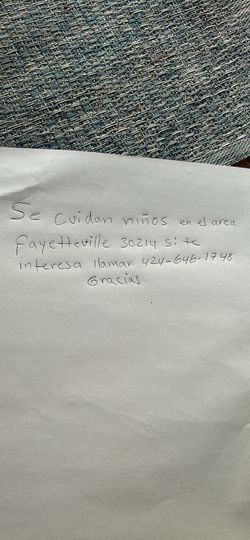 Se cuidan niños en el area
fayetteville 30214 si te
interesa llamar 424-646-1748
Gracias.